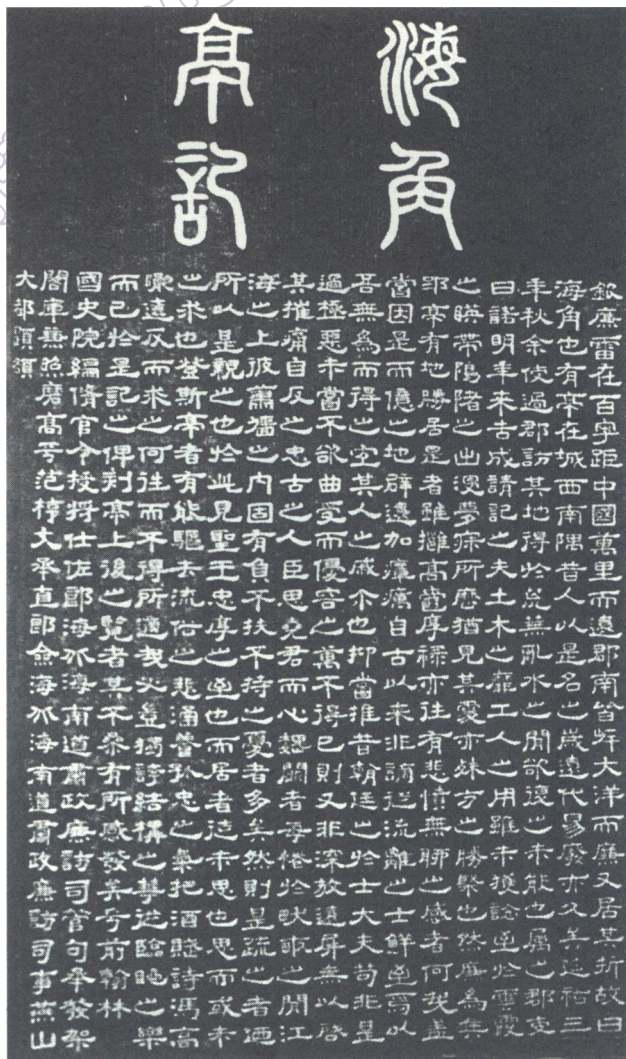 海角
亭記
欽廉雷在百粤距中國萬里而遠郡南皆岸大洋而廉又居其折故曰
海角也有亭在城西南隅昔人以是名之歲遠代易廢亦久矣延祐三
年秋余使過郡訪其地得於荒無亂水之間欲復之未能也属之郡吏
曰諾明年来告成請記之夫土木之靡工人之用雖未獲諗至於雲霞
之暎帶隝陼之出没夢寐所歷猶見其處亦殊方之勝槩也然廉為
耶亭有地勝居是者雖高厚禄亦往有悲憤無聊之感者何哉盖
當因是而億之地辟遠加瘴癘自古以来非謫徙流離之士鮮至焉以
吾無為而得之宜其人之戚尔也抑當推昔朝廷之於士大夫苟非是
過極惡未當不欲曲愛而優容之萬不得已則又非深放遠屏無以啓
其摧痛自反之忠古之人臣思君而心魏闕者每惓於畎畝之間江
海之上彼蕭牆之内固有負不扶不持之憂者多矣然則是疏之者廼
所以是親之也於此見聖王忠厚之至也而居者徒未思也思而或未
之求也登斯亭者有能驅去流俗之悲涌養孤忠之氣把酒賦詩馮高
遠反而求之何往而不得所適哉必豈獨誇結構之華從臨眺之樂
而已於是記之俾刻亭上後之覽者其不有所感發矣乎前翰林
國史院編脩官今授將仕佐郎海北海南道肅政廉訪司管句承發架
閣庫兼照磨高平范梈文承直郎僉海北海南道肅政廉訪司事燕山
大都